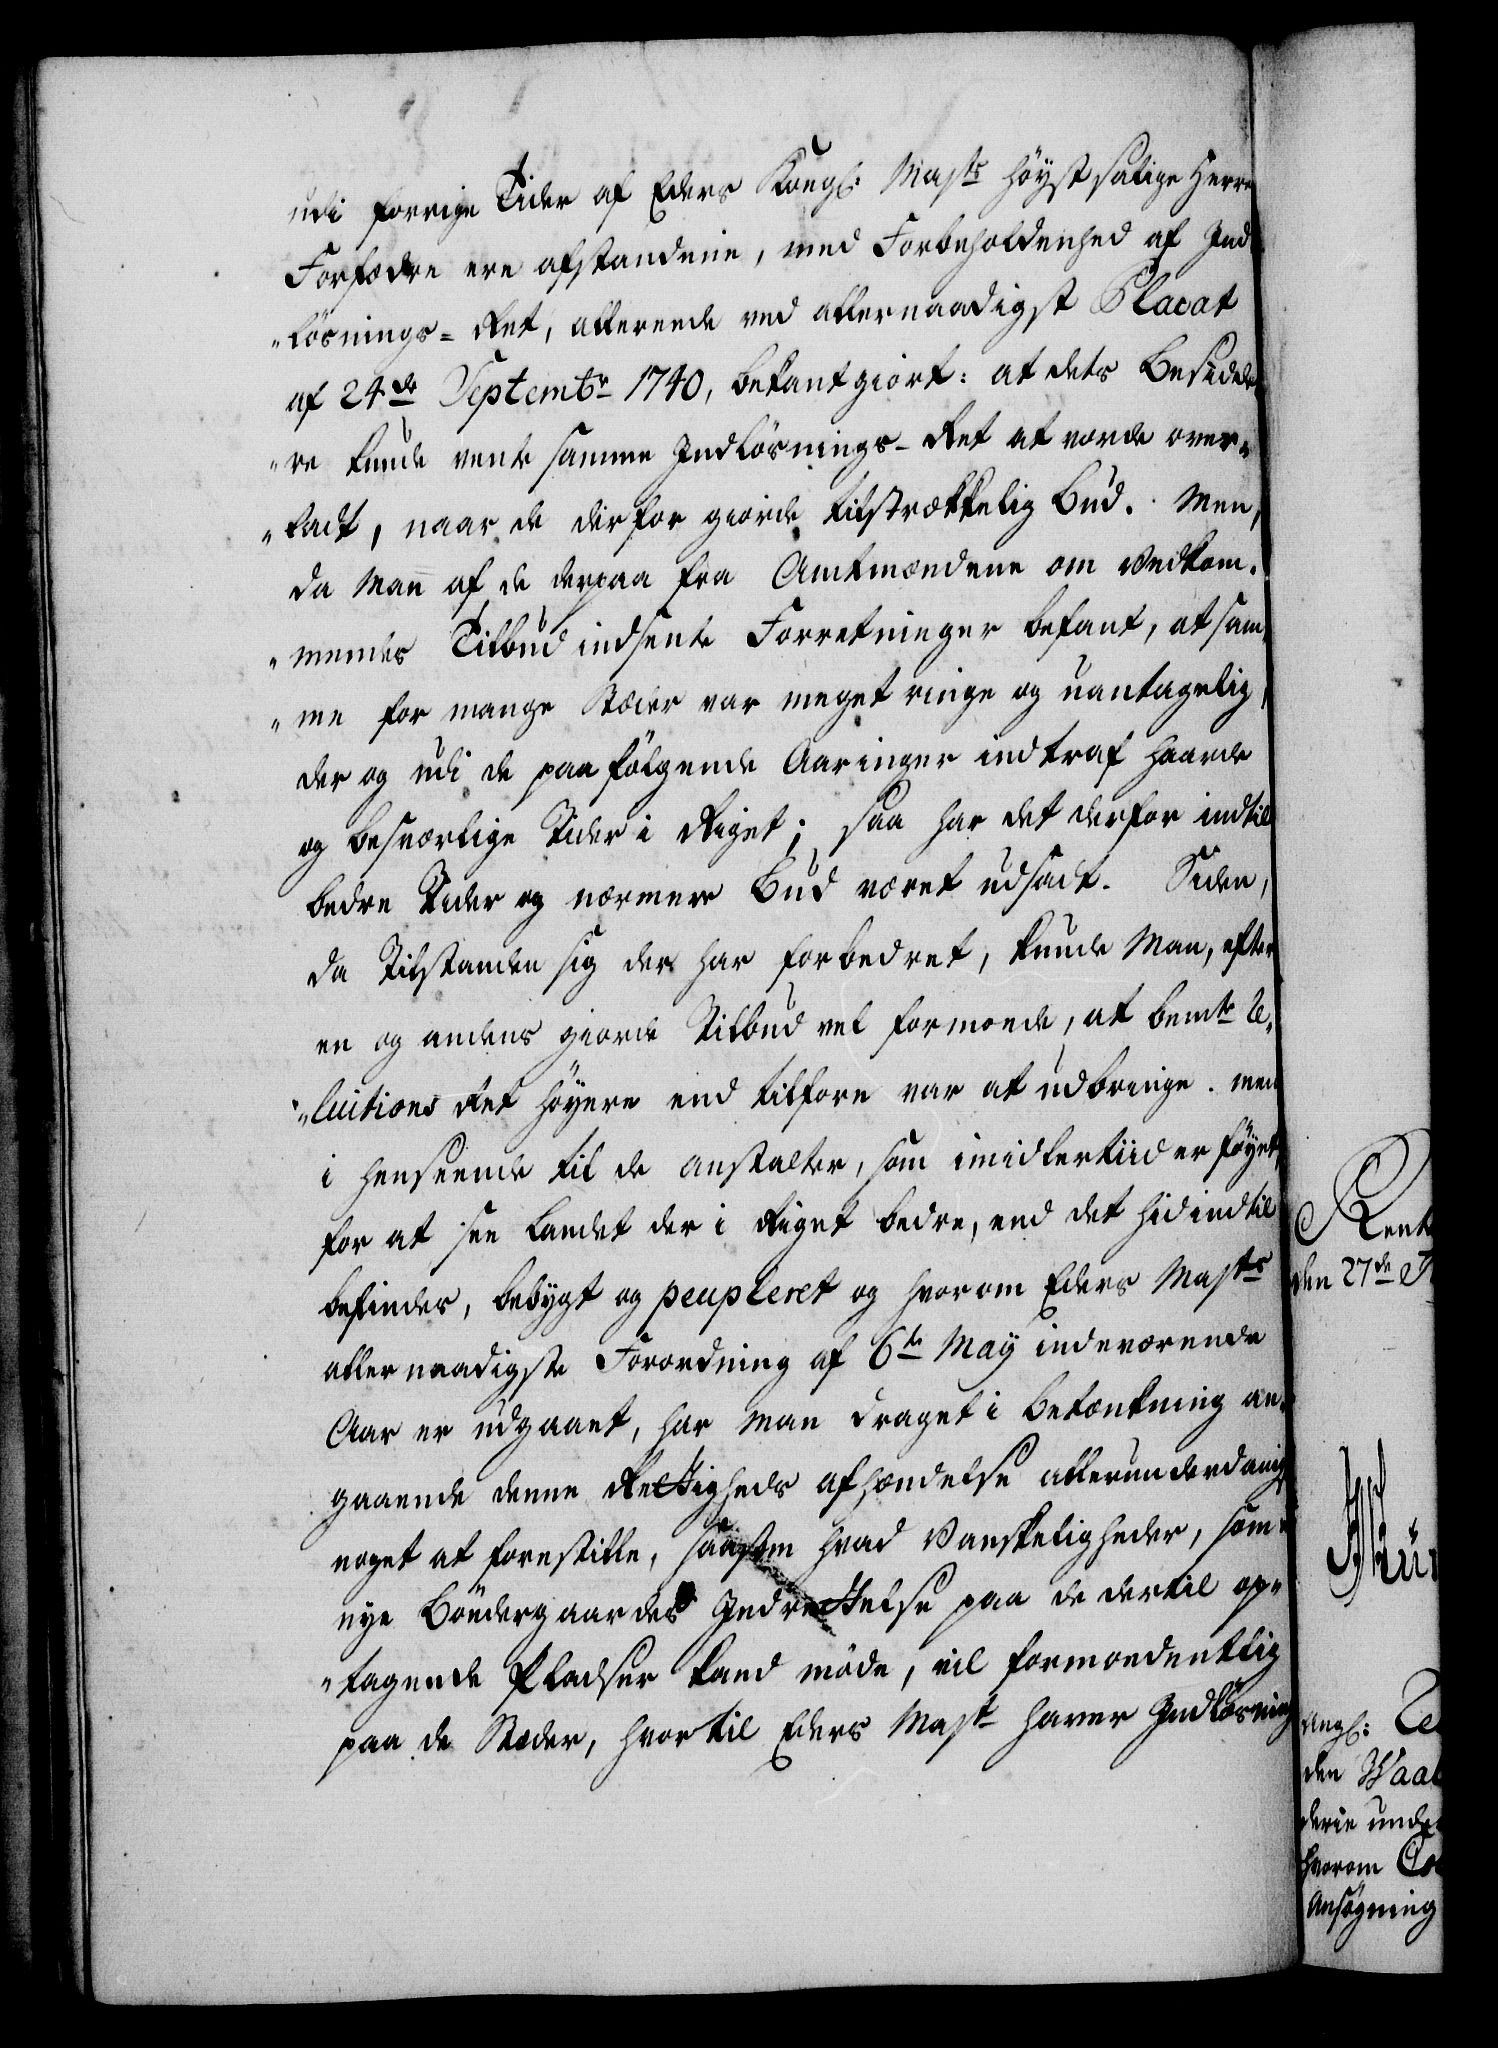 udi forrige Tider af Eders Kongl: Mayts høystsalige Herre
Forfædre ere afstandene, med Forbeholdenhed af Ind„
„lösnings-Ret, allereede ved allernaadigst Placat
af 24de Septembr 1740, bekantgiort: at dets Besidde„
„re kunde vente samme Indlösnings-Ret at vorde over„
„ladt, naar de derfor giorde tilstrækkelig Bud. Men,
da Man af de derpaa fra Amtmændene om Vedkom„
„mendes Tilbud indsente Forretninger befant, at sam„
„me for mange Stæder var meget ringe og uantagelig,
der og udi de paafölgende Aaringer indtraf haarde
og besværlige Tider i Riget; saa har det derfor indtil
bedre Tider og nærmere Bud været udsadt. Siden,
da Tilstanden sig der har forbedret, kunde Man, efter
en og andens giorde Tilbud vel formode, at bemte Re„
„luitions Ret höyere end tilforn var at udbringe. men
i henseende til de anstalter, som imidlertiid er föyet,
for at see Landet der i Riget bedre, end det hidindtil
befindes, bebygt og peupleret og hvorom Eders Mayts
allernaadigste Forordning af 6te May indeværende
Aar er udgaaet, har Man draget i betænkning an„
gaaende denne Rettigheds afhændelse allerunderdanigst
noget at forestille, saasom hvad Vanskeligheder, som
nye Böndergaardes Indrettelse paa de dertil op„
„tagende Pladser kand möde, vil formodentlig
paa de Stæder, hvortil Eders Mayt haver Indlösnings
Rent
den 27de
Kongl:
den
derie under
hvorom
Ansøgning